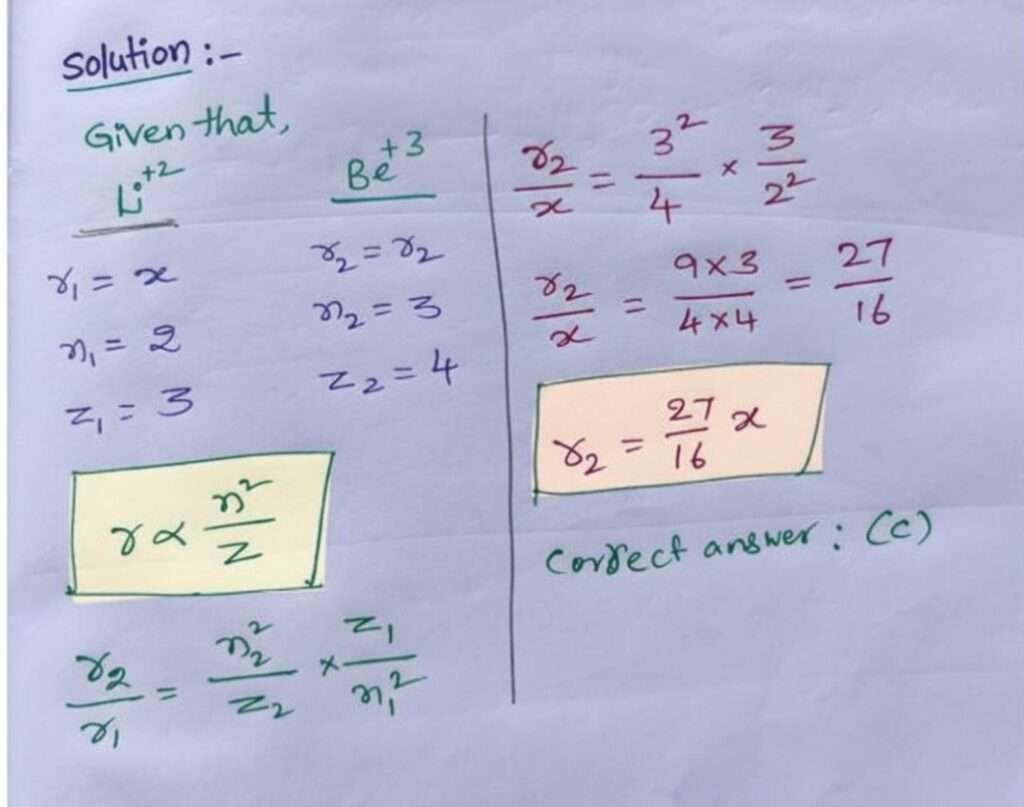 Solution :-
Given that,
Li⁺²
r₁ = x
n₁ = 2
z₁ = 3
Be⁺³
r₂ = r₂
n₂ = 3
z₂ = 4
r ∝ n²/z
r₂/r₁ = n₂²/z₂ × z₁/n₁²
r₂/x = 3²/4 × 3/2²
r₂/x = 9×3/4×4 = 27/16
r₂ = 27/16 x
Correct answer : (c)